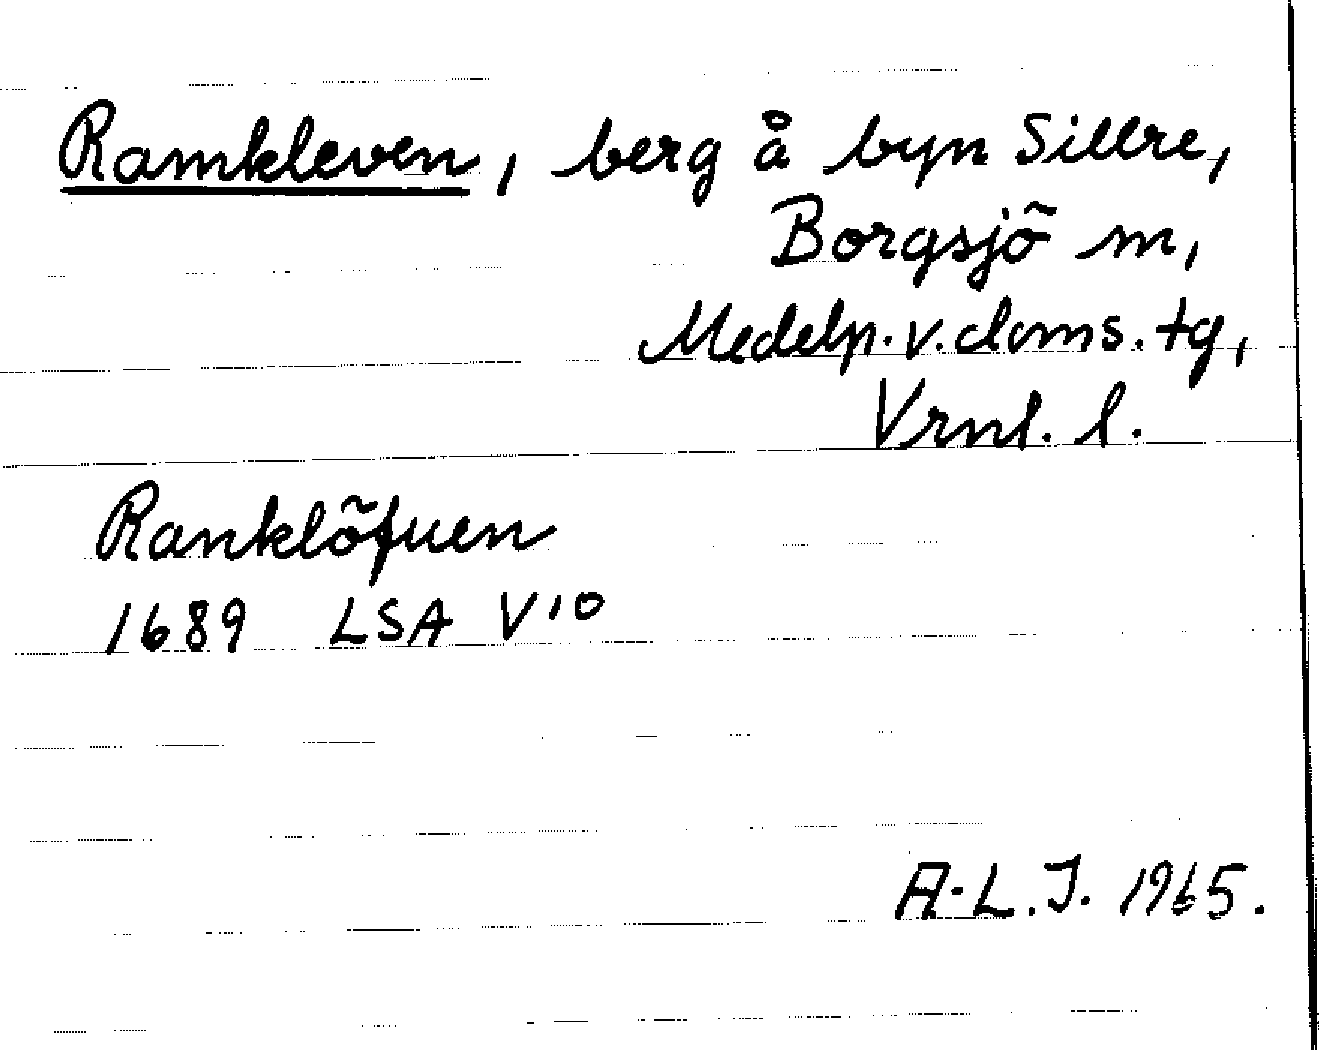 Ramkleven, berg å byn Sillre,
Borgsjö sn,
Medelp. v. doms. tg,
Vrnl. l.
Ranklöfuen
1689 LSA V10
A-L.J. 1965.